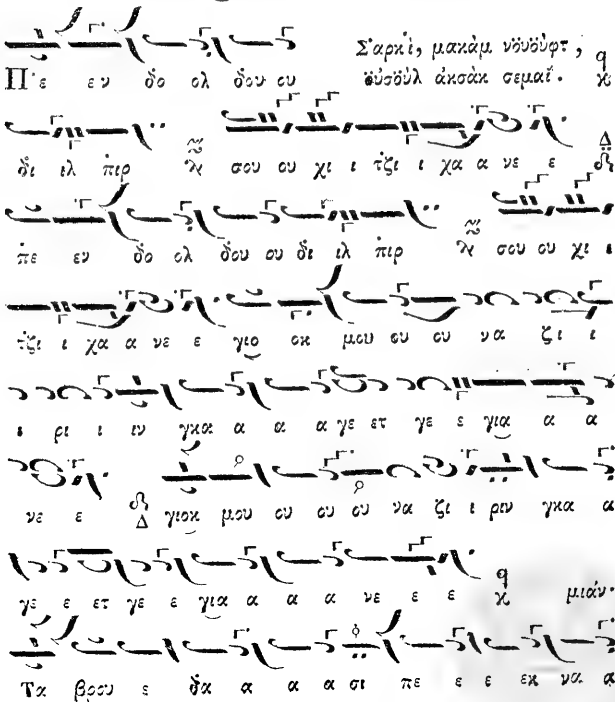 Σ'αρκὶ, μακὰμ νὄυὄυφτ,
Π ε εν δο ολ δου ου ὄυσὄυλ ἀκσὰκ σεμαΐ.
δι ιλ πιρ σου ου χι ι τζι ι χα α νε ε
πε εν δο ολ δου ου δι ιλ πιρ σου ου χι ι
τζι ι χα α νε ε γιο οκ μου ου ου να ζι ι
ι ρι ι ιν γκα α α α γε ετ γε ε για α α
νε ε γιοκ μου ου ου ου να ζι ι ριν γκα α
γε ε ετ γε ε για α α α νε ε ε μιάν.
Τα βρου ε δα α α α σι πε ε ε εκ να α